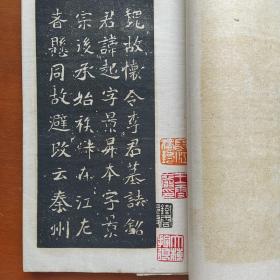 魏故懷令李君墓誌銘
君諱起字景昇本字景
宗後承始族
在江左
春懸同故避改云秦州